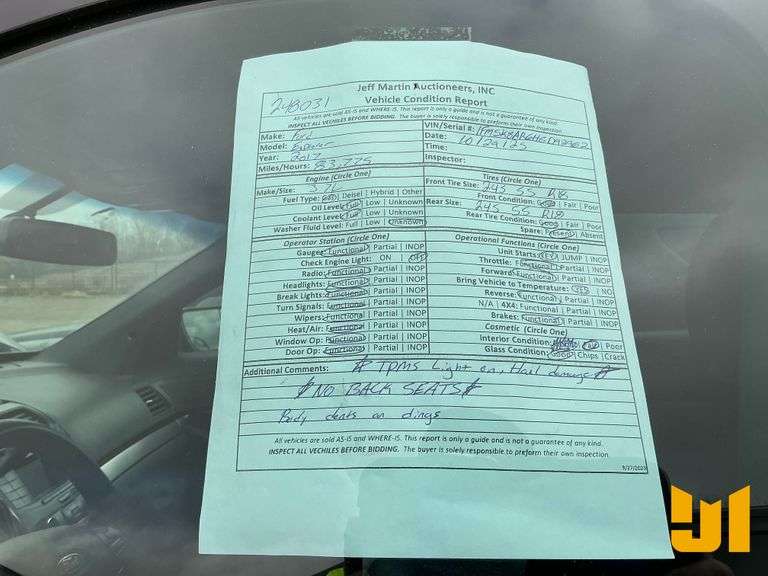 Jeff Martin Auctioneers, INC
248031
Vehicle Condition Report
All vehicles are sold AS-IS and WHERE-IS. This report is only a guide and is not a guarantee of any kind.
INSPECT ALL VECHILES BEFORE BIDDING. The buyer is solely responsible to preform their own inspection.
Make: Ford
Model: Explorer
Year: 2017
Miles/Hours: 83,775
VIN/Serial #:
Date: 10/29/25
Time:
Inspector:
Engine (Circle One)
Make/Size: 3.7L
Fuel Type: Gas | Deisel | Hybrid | Other
Oil Level: Full | Low | Unknown
Coolant Level: Full | Low | Unknown
Washer Fluid Level: Full | Low | Unknown
Tires (Circle One)
Front Tire Size: 245 55 R18
Front Condition: Good | Fair | Poor
Rear Size: 245 55 R18
Rear Tire Condition: Good | Fair | Poor
Spare: Present | Absent
Operator Station (Circle One)
Gauges: Functional | Partial | INOP
Check Engine Light: ON | OFF
Radio: Functional | Partial | INOP
Headlights: Functional | Partial | INOP
Break Lights: Functional | Partial | INOP
Turn Signals: Functional | Partial | INOP
Wipers: Functional | Partial | INOP
Heat/Air: Functional | Partial | INOP
Window Op: Functional | Partial | INOP
Door Op: Functional | Partial | INOP
Operational Functions (Circle One)
Unit Starts: YES | JUMP | INOP
Throttle: Functional | Partial | INOP
Forward: Functional | Partial | INOP
Bring Vehicle to Temperature: YES | NO
Reverse: Functional | Partial | INOP
N/A | 4X4: Functional | Partial | INOP
Brakes: Functional | Partial | INOP
Cosmetic (Circle One)
Interior Condition: | Fair | Poor
Glass Condition: Good | Chips | Crack
Additional Comments: TPMS Light on, Hail damage
NO BACK SEATS
Body dents an dings
All vehicles are sold AS-IS and WHERE-IS. This report is only a guide and is not a guarantee of any kind.
INSPECT ALL VEHILES BEFORE BIDDING. The buyer is solely responsible to preform their own inspection.
9/27/2023